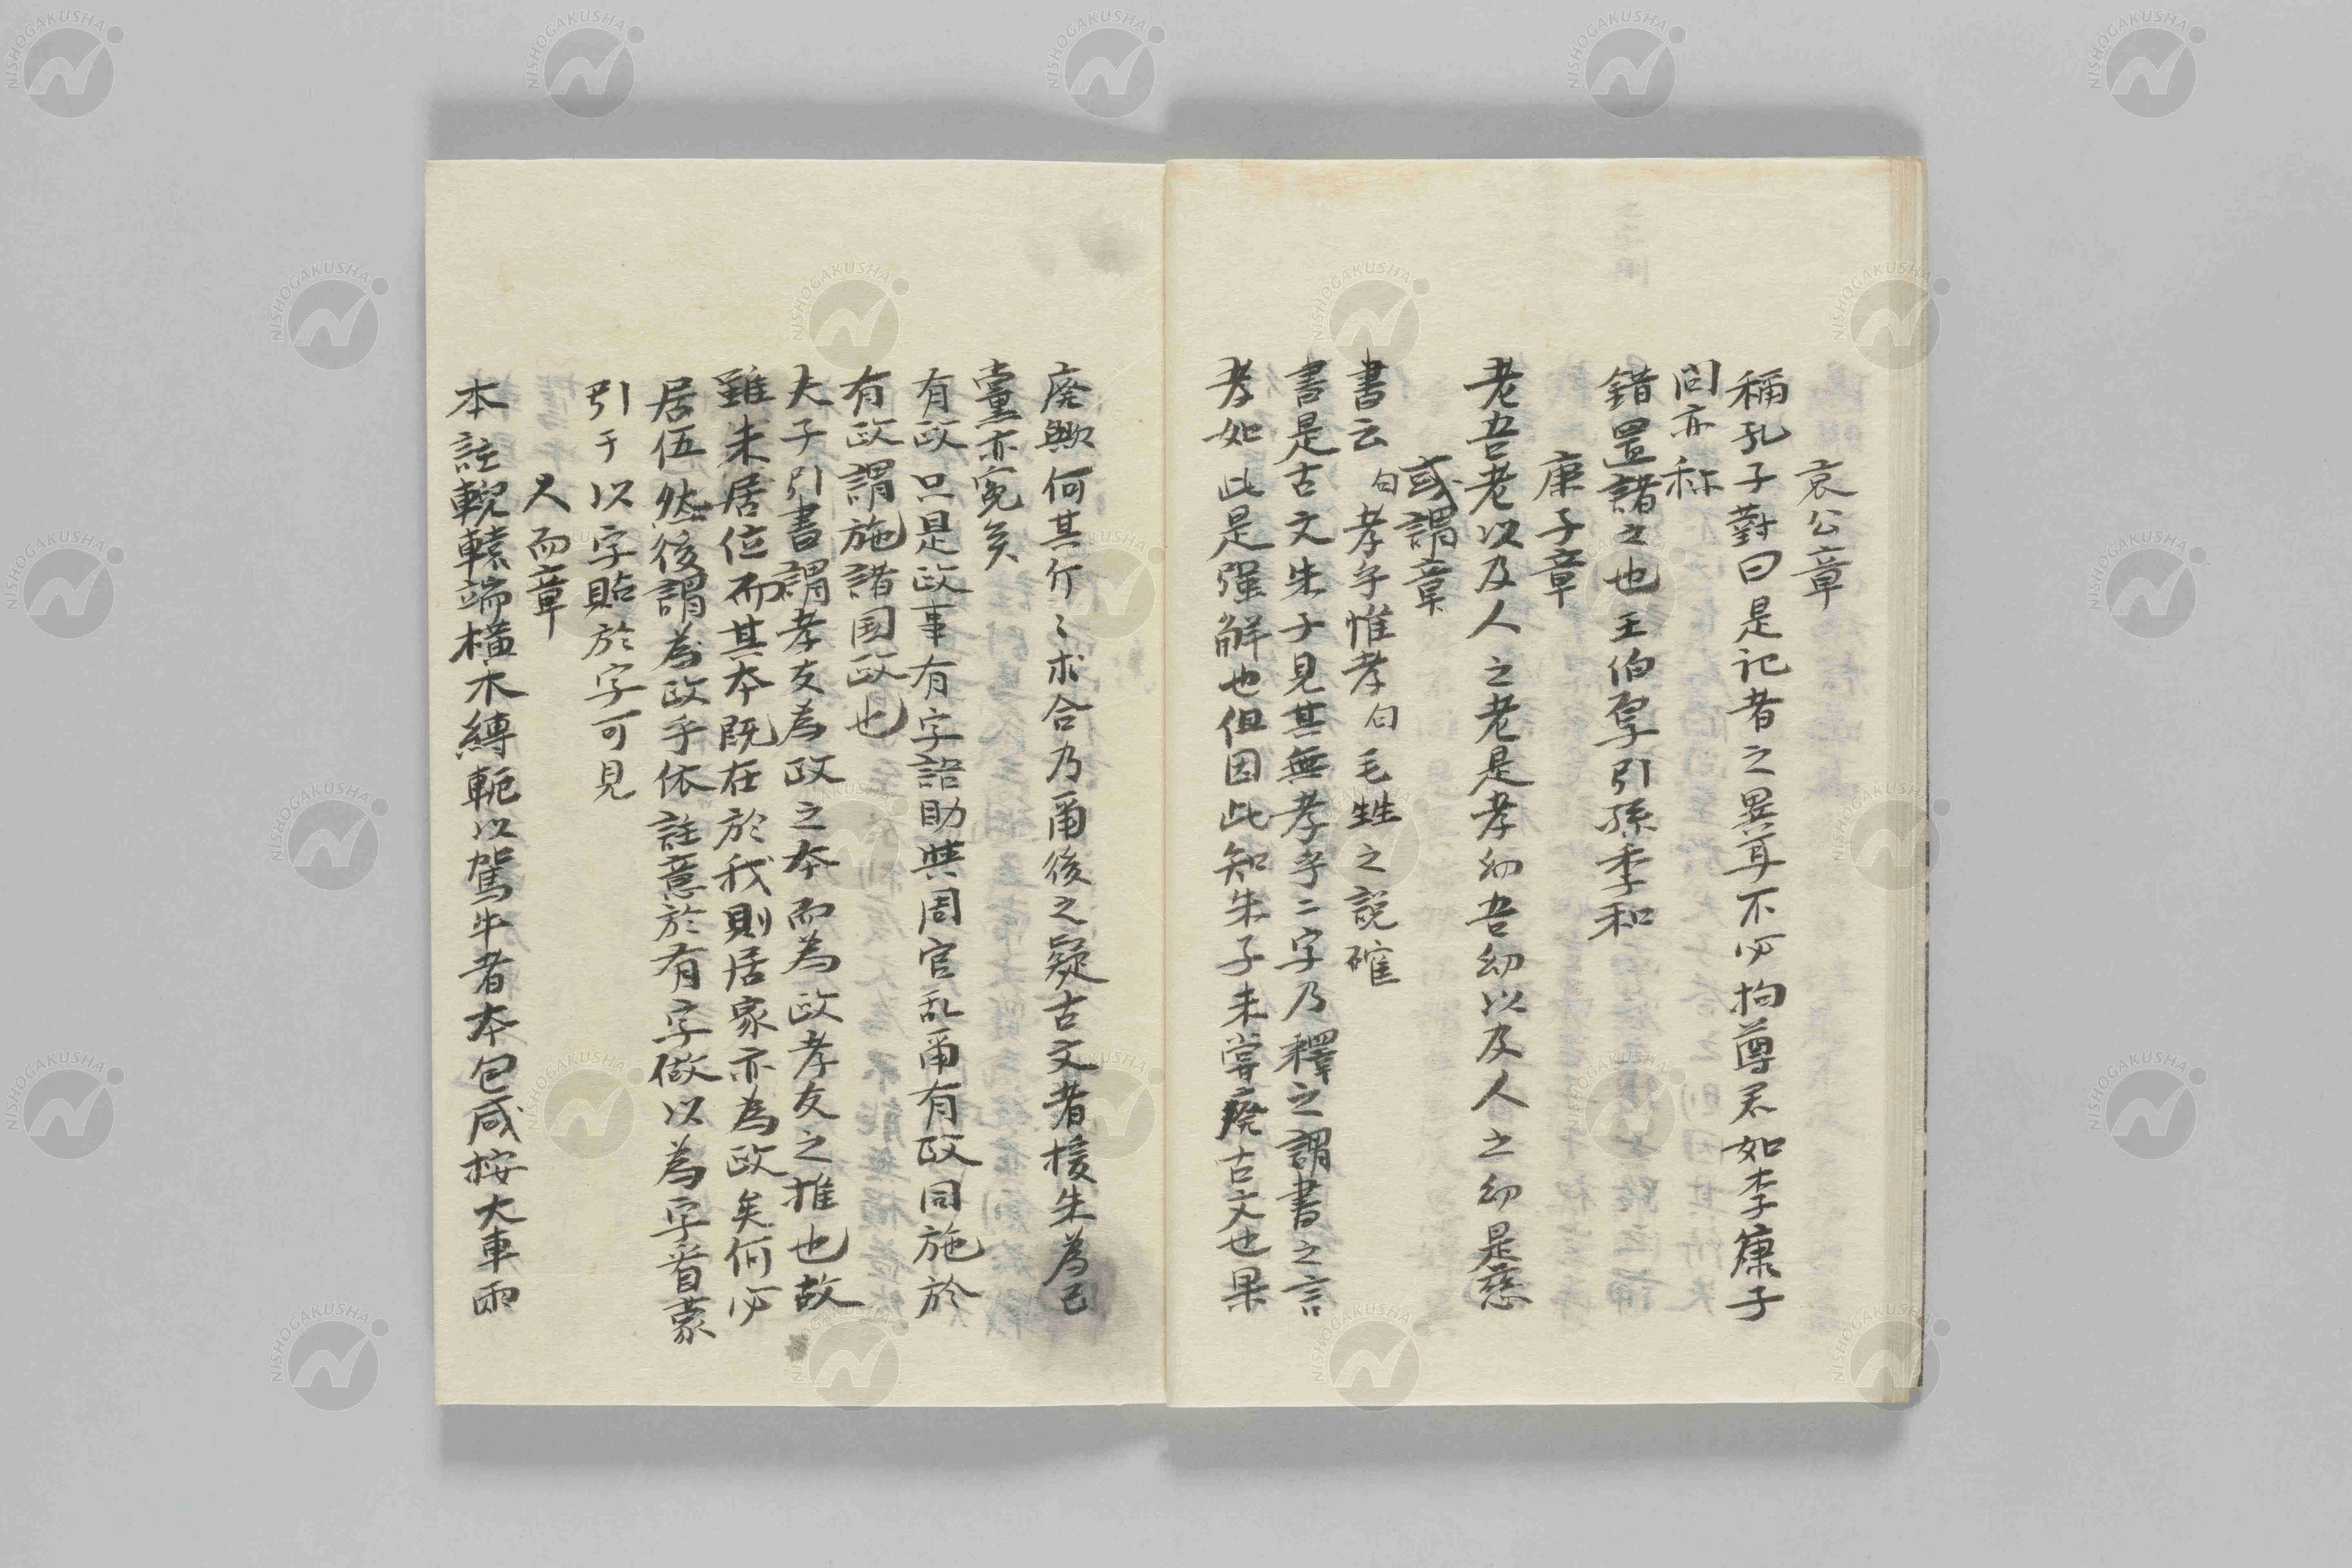 哀公章
稱孔子對曰是記者之異耳不必拘尊君如季康子
問亦称
錯置諸之也王伯厚引孫季和
康子章
老吾老以及人之老是孝幼吾幼以及人之幼是慈
或謂章
書云句孝乎惟孝句毛甡之說確
書是古文朱子見其無孝乎二字乃釋之謂書之言
孝如此是强解也但因此知朱子未嘗廃古文也果
廃歟何其斤〻求合乃爾後之疑古文者援朱為己
黨亦冤矣
有政只是政事有字語助與周官乱爾有政同施於
有政謂施諸国政也
夫子引書謂孝友為政之本而為政孝友之推也故
雖未居位而其本既在於我則居家亦為政矣何必
居位然後謂為政乎依註意於有字做以為字看蒙
引于以字貼於字可見
人而章
本註輗轅端橫木縛軛以駕牛者本包咸按大車兩